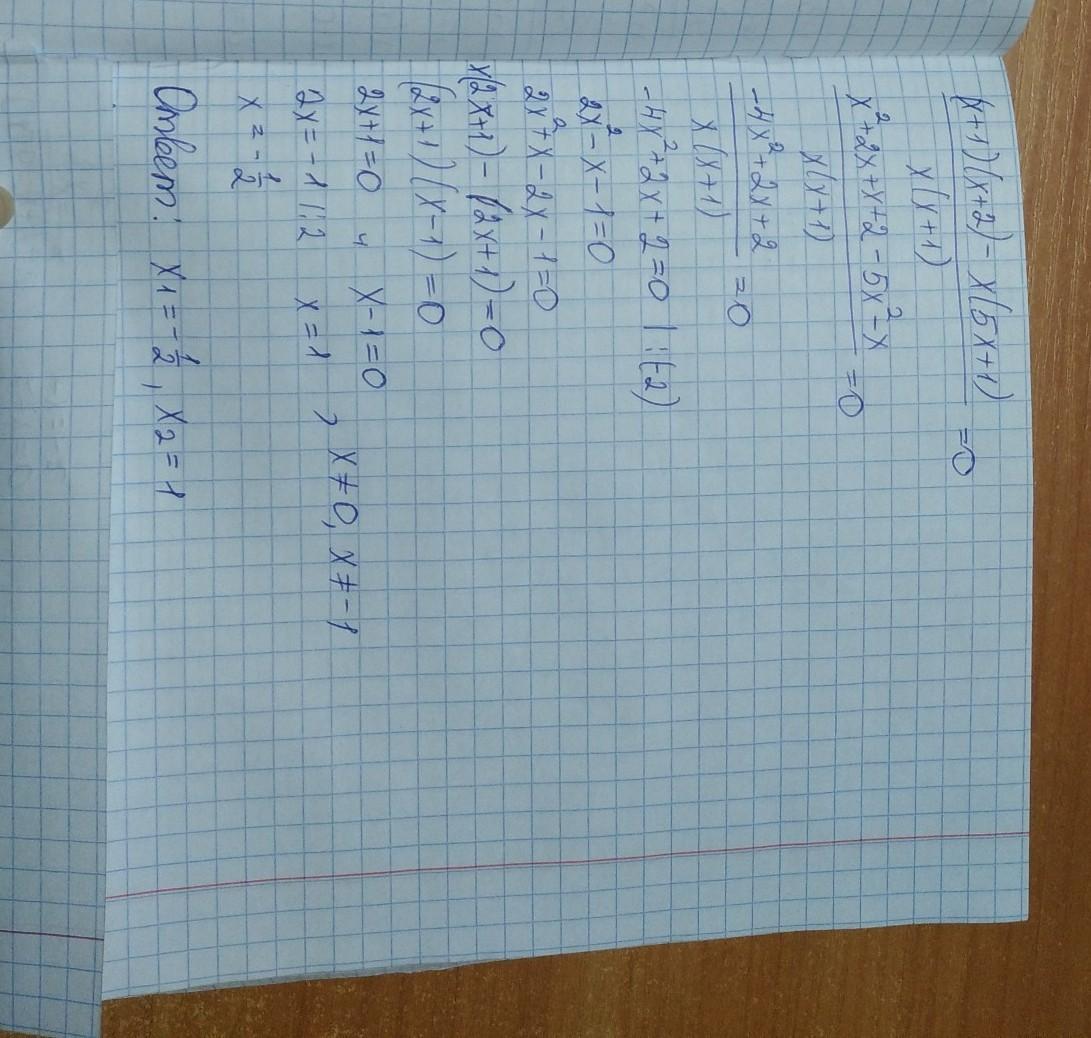 (x+1)(x+2) - x(5x+1)
x(x+1)
=0
x²+2x+x+2-5x²-x
x(x+1)
=0
-4x²+2x+2
x(x+1)
=0
-4x²+2x+2=0 |:(-2)
2x²-x-1=0
2x²+x-2x-1=0
x(2x+1)-(2x+1)=0
(2x+1)(x-1)=0
2x+1=0 и x-1=0
2x=-1 |:2 x=1 , x≠0, x≠-1
x=-1/2
Ответ: x1=-1/2, x2=1